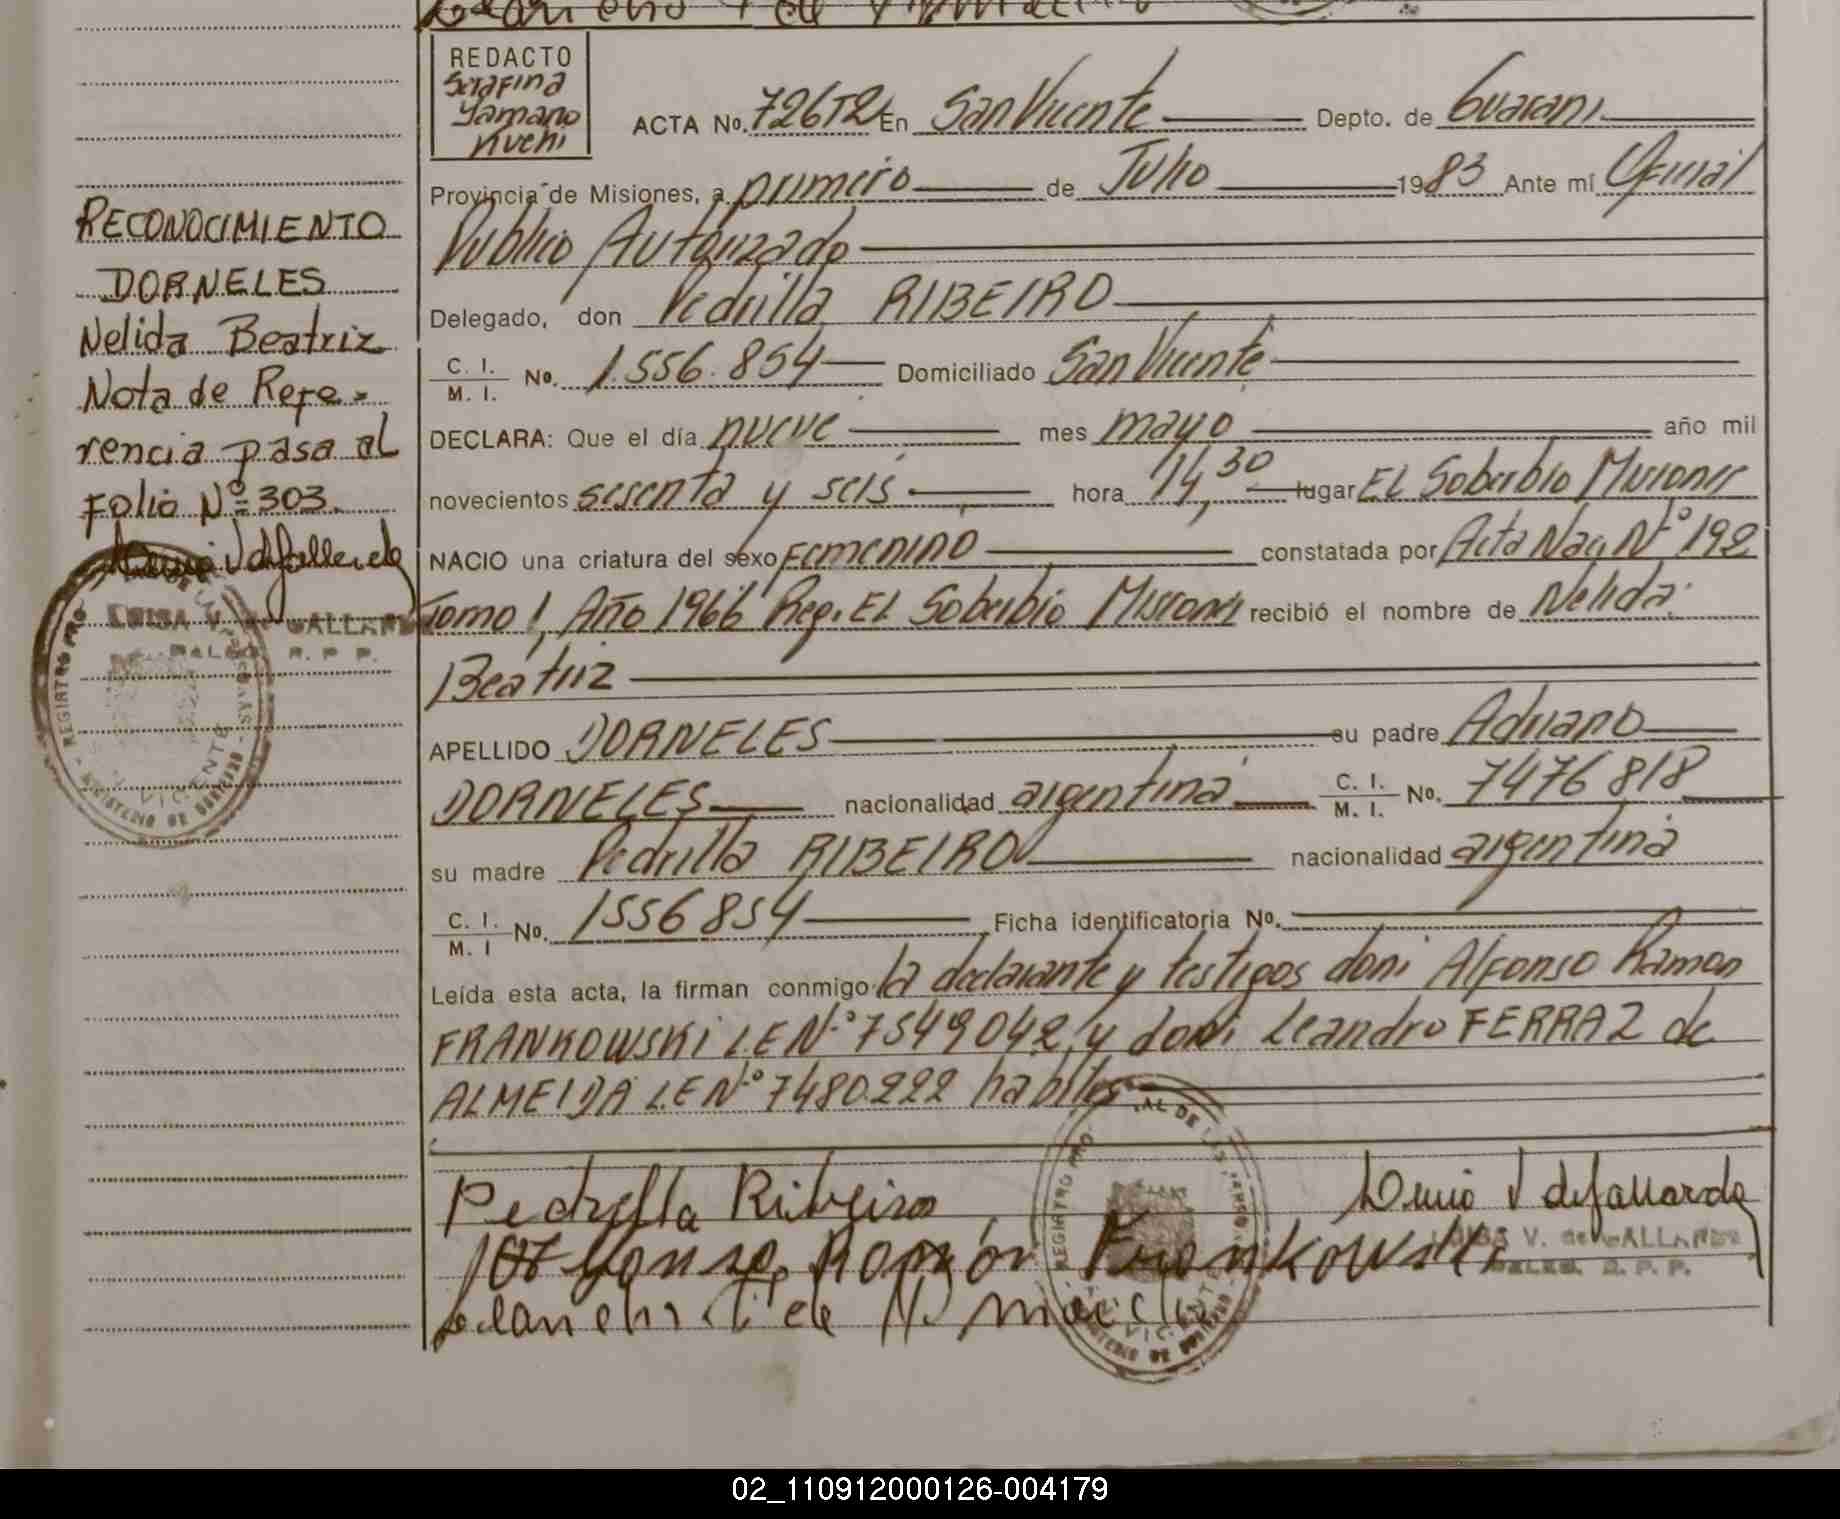 REDACTO
Serafina
Yamano
Kuchi
ACTA No. 726T2 En San Vicente Depto. de Guarani
Provincia de Misiones, a primero de Julio 1983 Ante mí Oficial
Publico Autorizado
Delegado, don Pedrilla RIBEIRO
C. I.
M. I. No. 1.556.854 Domiciliado San Vicente
DECLARA: Que el día nueve mes mayo año mil
novecientos sesenta y seis hora 14,30 lugar EL Soberbio Misiones
NACIO una criatura del sexo FEMENINO constatada por Acta Nac. Nº 192
Tomo 1, Año 1966 Reg. EL Soberbio Misiones recibió el nombre de Nelida
Beatriz
APELLIDO DORNELES su padre Adriano
DORNELES nacionalidad argentina C. I.
M. I. No. 7476818
su madre Pedrilla RIBEIRO nacionalidad argentina
C. I.
M. I No. 1556854 Ficha identificatoria No.
Leída esta acta, la firman conmigo la declarante y testigos don: Alfonso Ramon
FRANKOWSKI L.E Nº 7549042 y don: Leandro FERRAZ de
ALMEIDA L.E Nº 7480222 habiles
Pedrylla Ribeiro
Ramón Frankowski
LUISA V. de GALLARDO
R. P. P.
REGISTRO PRO AL DE LAS
VICENTE
MINISTERIO DE GOBIERNO
RECONOCIMIENTO
DORNELES
Nelida Beatriz
Nota de Refe=
rencia pasa al
Folio Nº=303.
LUISA V. de GALLARDO
R. P. P.
REGISTRO PRO
VICENTE
MINISTERIO DE GOBIERNO
02_110912000126-004179